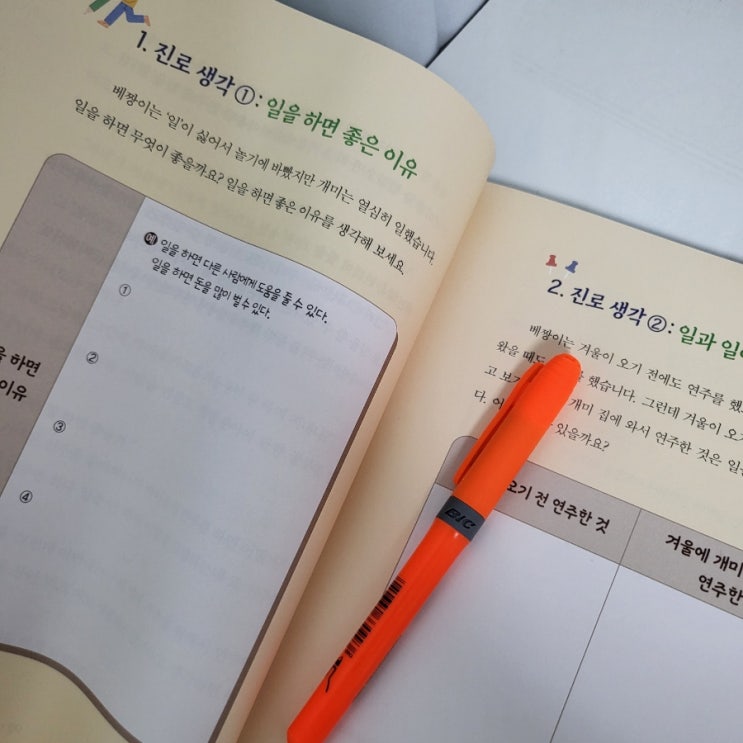 1. 진로 생각①: 일을 하면 좋은 이유
베짱이는 '일'이 싫어서 놀기에 바빴지만 개미는 열심히 일했습니다.
일을 하면 무엇이 좋을까요? 일을 하면 좋은 이유를 생각해 보세요.
하면
이유
예 일을 하면 다른 사람에게 도움을 줄 수 있다.
일을 하면 돈을 많이 벌 수 있다.
①
②
③
④
2. 진로 생각②: 일과
베짱이는 겨울이 오기 전에도 연주를
왔을 때도 했습니다. 그런데 겨울이
고 개미 집에 와서 연주한 것은
다. 있을까요?
오기 전 연주한 것
겨울에 개미
연주한
BIC